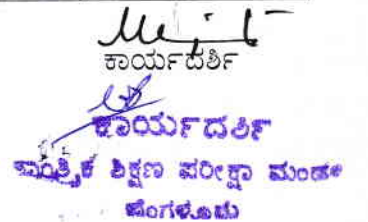 ಕಾರ್ಯದರ್ಶಿ
ಕಾರ್ಯದರ್ಶಿ
ತಾಂತ್ರಿಕ ಶಿಕ್ಷಣ ಪರೀಕ್ಷಾ ಮಂಡಳಿ
ಬೆಂಗಳೂರು